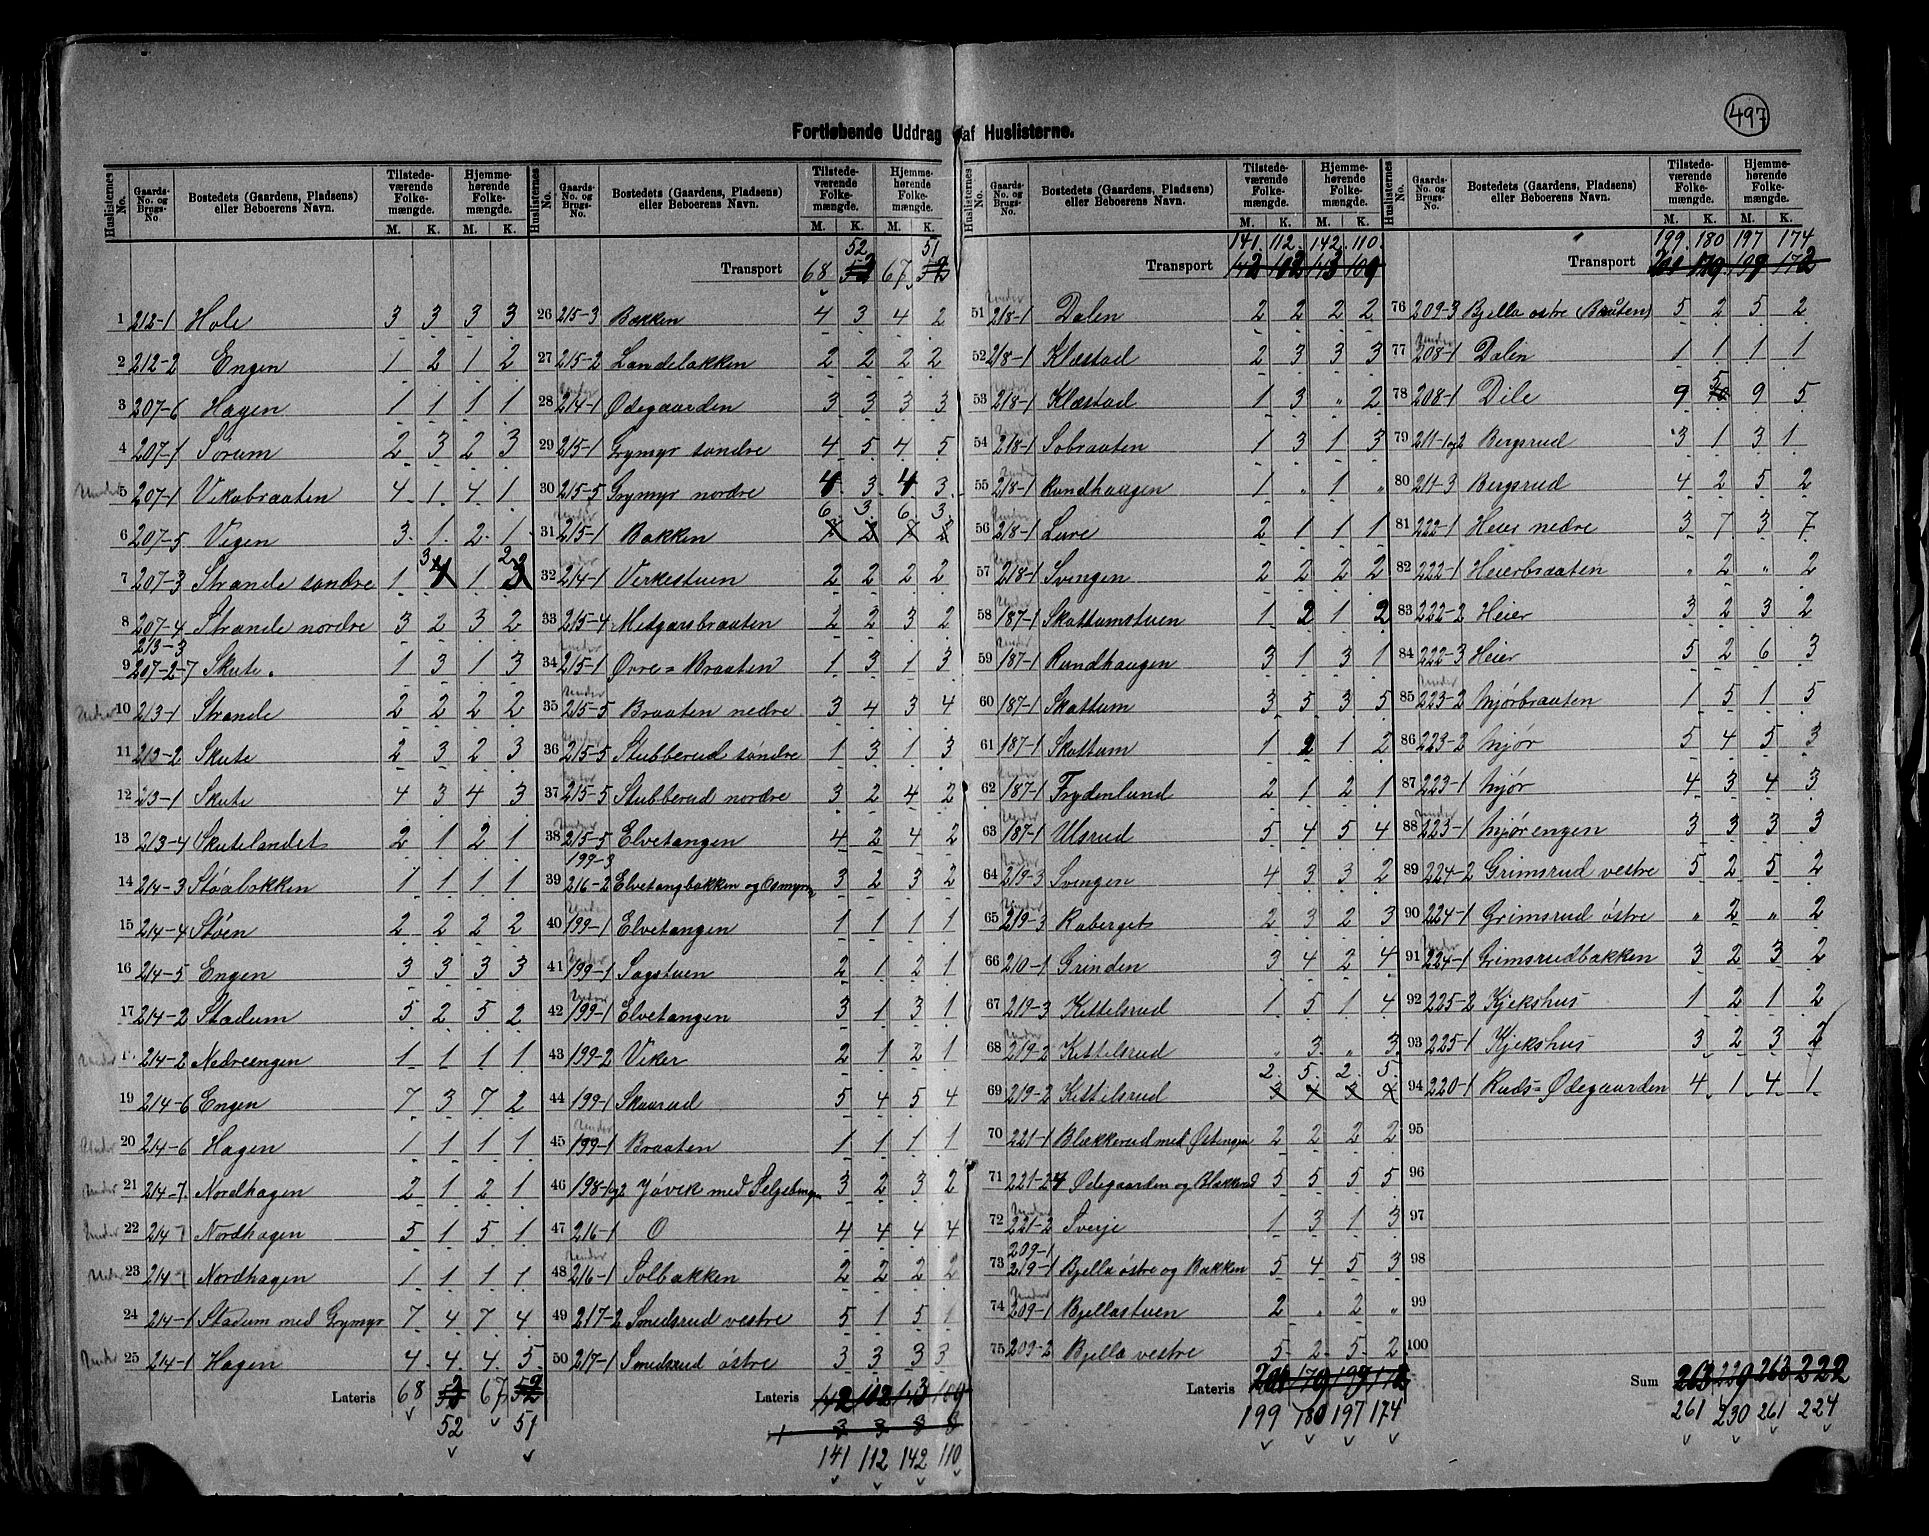 497
Fortløbende Uddrag af Huslisterne.
Huslisternes No. Gaards-No. og Brugs-No. Bostedets (Gaardens, Pladsens) eller Beboerens Navn. Tilstedeværende Folkemængde. M. K. Hjemmehørende Folkemængde. M. K.
1 212-1 Hole 3 3 3 3
2 212-2 Engen 1 2 1 2
3 207-6 Hagen 1 1 1 1
4 207-1 Sorum 2 3 2 3
Under 5 207-1 Vikabraaten 4 1 4 1
6 207-5 Vigen 3 1 2 1
7 207-3 Strande søndre 1 3 1 2
8 207-4 Strande nordre 3 2 3 2
213-3
9 207-2-7 Skute. 1 3 1 3
Under 10 213-1 Strande 2 2 2 2
11 213-2 Skute 2 3 2 3
12 213-1 Skute 4 3 4 3
13 213-4 Skutelandet 2 1 2 1
14 214-3 Støabakken 1 1 1 1
15 214-4 Støen 2 2 2 2
16 214-5 Engen 3 3 3 3
17 214-2 Stadum 5 2 5 2
Under 214-2 Nedreengen 1 1 1 1
19 214-6 Engen 7 3 7 2
Under 20 214-6 Hagen 1 1 1 1
Under 21 214-7 Nordhagen 2 1 2 1
Under 22 214-7 Nordhagen 5 1 5 1
Under 23 214-7 Nordhagen 1 1 1 1
24 214-1 Stadum med Grymyr 7 4 7 4
Under 25 214-1 Hagen 4 4 4 5
Lateris 68 67
52 51
Huslisternes No. Gaards-No. og Brugs-No. Bostedets (Gaardens, Pladsens) eller Beboerens Navn. Tilstedeværende Folkemængde. M. K. Hjemmehørende Folkemængde. M. K.
52 51
Transport 68 67
26 215-3 Bakken 4 3 4 2
27 215-2 Landelakken 2 2 2 2
28 Under 214-1 Ødegaarden 3 3 3 3
29 215-1 Grymyr søndre 4 5 4 5
30 215-5 Grymyr nordre 4 3 4 3
6 3 6 3
31 Under 215-1 Bakken
32 Under 214-1 Virkestuen 2 2 2 2
33 215-4 Midgarsbraaten 2 2 3 2
34 Under 215-1 Ovre=Braaten 1 3 1 3
35 Under 215-5 Braaten nedre 3 4 3 4
36 Under 215-5 Stubberud søndre 1 3 1 3
37 Under 215-5 Stubberud nordre 3 2 4 2
38 Under 215-5 Elvetangen 4 2 4 2
199-3
39 216-2 Elvetangbakken og Osmyren 3 2 3 2
40 Under 199-1 Elvetangen 1 1 1 1
41 Under 199-1 Sagstuen 2 1 2 1
42 Under 199-1 Elvetangen 3 1 3 1
43 199-2 Viker 2 1 2 1
44 199-1 Skaarud 5 4 5 4
45 Under 199-1 Braaten 1 1 1 1
46 198-1og2 Jøvik med 3 2 3 2
47 216-1 O 4 4 4 4
48 Under 216-1 Solbakken 2 2 2 2
49 217-2 Smedsrud vestre 5 1 5 1
50 217-1 Smedsrud østre 3 3 3 3
Lateris 142 102 143 109
141 112 142 110
Huslisternes No. Gaards-No. og Brugs-No. Bostedets (Gaardens, Pladsens) eller Beboerens Navn. Tilstedeværende Folkemængde. M. K. Hjemmehørende Folkemængde. M. K.
141. 112. 142. 110.
Transport 142 102 143 109
51 Under 218-1 Dalen 2 2 2 2
52 218-1 Klæstad 2 3 3 3
53 Under 218-1 Klæstad 1 3 " 2
54 Under 218-1 Sobraaten 1 3 1 3
55 Under 218-1 Rundhaugen 1 " 1 "
56 Under 218-1 Lure 2 1 1 1
57 Under 218-1 Svingen 2 2 2 2
58 Under 187-1 Skattumstuen 1 2 1 2
59 Under 187-1 Rundhaugen 3 1 3 1
60 187-1 Skattum 3 5 3 5
61 187-1 Skattum 1 2 1 2
62 Under 187-1 Frydenlund 2 1 2 1
63 Under 187-1 Ulsrud 5 4 5 4
64 Under 219-3 Svengen 4 3 3 2
65 Under 219-3 Raberget 2 3 2 3
66 210-1 Grinden 3 4 2 4
67 219-3 Kittelsrud 1 5 1 4
68 Under 219-2 Kittelsrud " 3 " 3
2. 5. 2. 5.
69 219-2 Kittelsrud
70 221-1 Blækkerud med Østengen 2 2 2 2
71 Ødegaarden og Blækkerud 5 5 5 5
72 Under 221-2 Sverje 1 3 1 3
209-1
73 219-1 Bjella østre og Bakken 5 4 5 3
74 Under 209-1 Bjellastuen 2 " 2 "
75 209-2 Bjella vestre 5 2 5 2
Lateris
199 180 197 174
Huslisternes No. Gaards-No. og Brugs-No. Bostedets (Gaardens, Pladsens) eller Beboerens Navn. Tilstedeværende Folkemængde. M. K. Hjemmehørende Folkemængde. M. K.
199. 180 197 174
Transport
76 209-3 Bjella østre (Braaten) 5 2 5 2
77 Under 208-1 Dalen 1 1 1 1
78 208-1 Dile 9 5 9 5
79 211-1og2 Bergsrud 3 1 3 1
80 211-3 Bergsrud 4 2 5 2
81 222-1 Heier nedre 3 7 3 7
82 222-1 Heierbraaten " 2 " 2
83 222-2 Heier 3 2 3 2
84 222-3 Heier 5 2 6 3
85 Under 223-2 Mjørbraaten 1 5 1 5
86 223-2 Mjør 5 4 5 3
87 223-1 Mjør 4 3 4 3
88 Under 223-1 Mjørengen 3 3 3 3
89 224-2 Grimsrud vestre 5 2 5 2
90 224-1 Grimsrud østre " 2 " 2
91 Under 224-1 Grimsrudbakken 3 2 3 2
92 225-2 Kjekshus 1 2 1 2
93 225-1 Kjekshus 3 2 3 2
94 220-1 Ruds=Ødegaarden 4 1 4 1
95
96
97
98
99
100
Sum 263 229 263 222
261 230 261 224